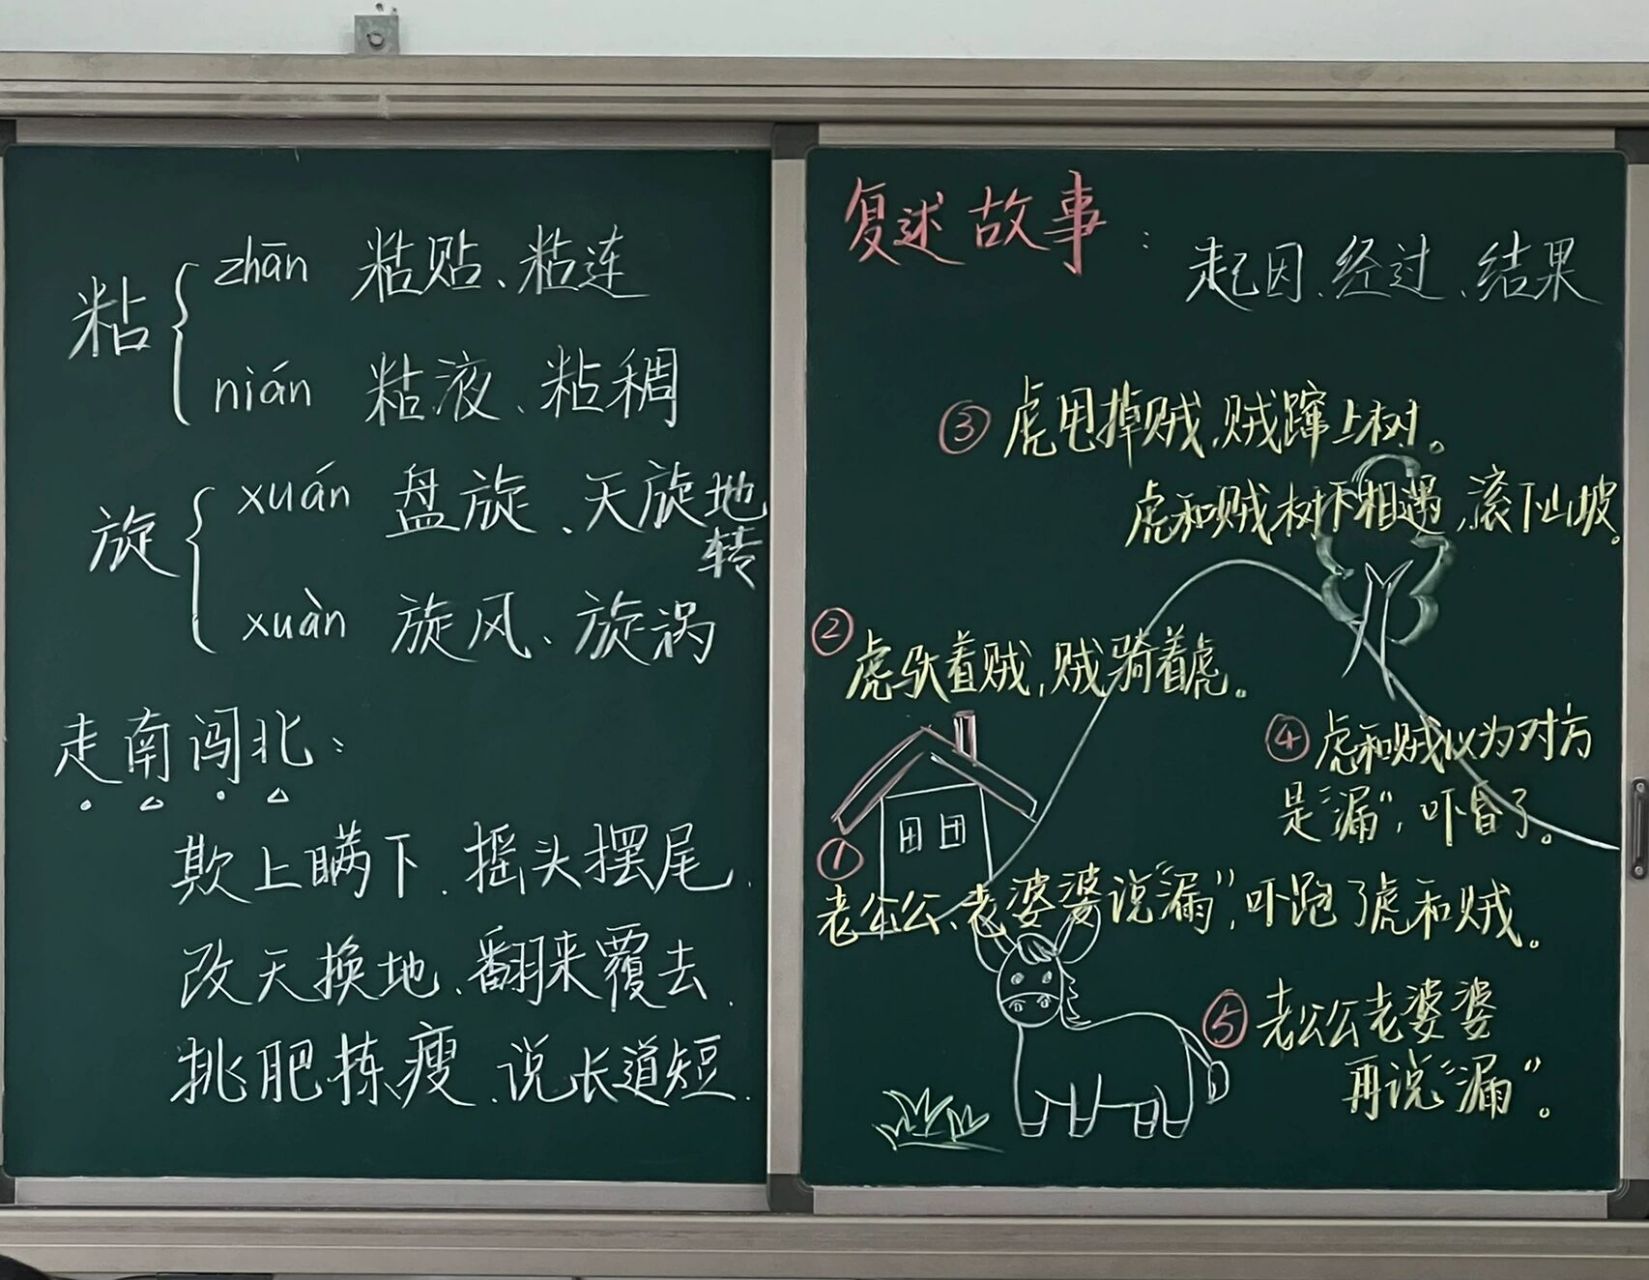 粘 zhān 粘贴、粘连
nián 粘液、粘稠
旋 xuán 盘旋、天旋地转
xuàn 旋风、旋涡
走南闯北:
欺上瞒下、摇头摆尾、
改天换地、翻来覆去、
挑肥拣瘦、说长道短.
复述故事:起因、经过、结果
③虎甩掉贼,贼蹿上树。
虎和贼树下相遇,滚下山坡。
②虎驮着贼,贼骑着虎。
④虎和贼以为对方
是“漏”,吓昏了。
①老公公、老婆婆说“漏”,吓跑了虎和贼。
⑤老公公老婆婆
再说“漏”。